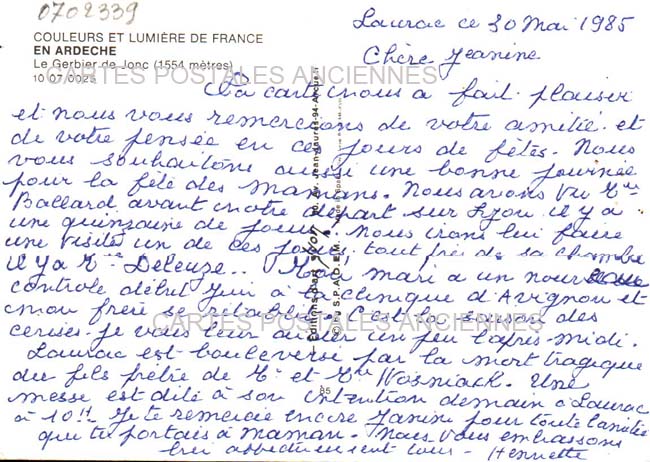 0702339
COULEURS ET LUMIÈRE DE FRANCE
EN ARDECHE
Le Gerbier de Jonc (1554 mètres)
10 07/0025
CARTES POSTALES ANCIENNES
Laurac ce 30 Mai 1985
Chère Jeanine
Ta carte nous a fait plaisir
et nous vous remercions de votre amitié et
de votre pensée en ces jours de fêtes. Nous
vous souhaitons aussi une bonne journée
pour la fête des Mamans. Nous avons vu Mme
Ballard avant notre départ sur Lyon il y a
une quinzaine de jours. Nous irons lui faire
une visite un de ces jours, tout près de sa chambre
il y a Mme Deleuze.. Mon mari a un nouveau
contrôle début Juin à la clinique d'Avignon et
mon frère se rétablit. C'est la saison des
cerises. je vais leur aider un peu l'après-midi.
CARTES POSTALES ANCIENNES
Laurac est bouleversé par la mort tragique
du fils prêtre de Mr et Mme Wosniack. Une
messe est dite à son intention demain à Laurac
à 10H. Je te remercie encore Janine pour toute l'amitié
que tu portais à maman. Nous vous embrassons
bien affectueusement tous - Henriette
Editions d'art
S.P.A.D.E.M.
85